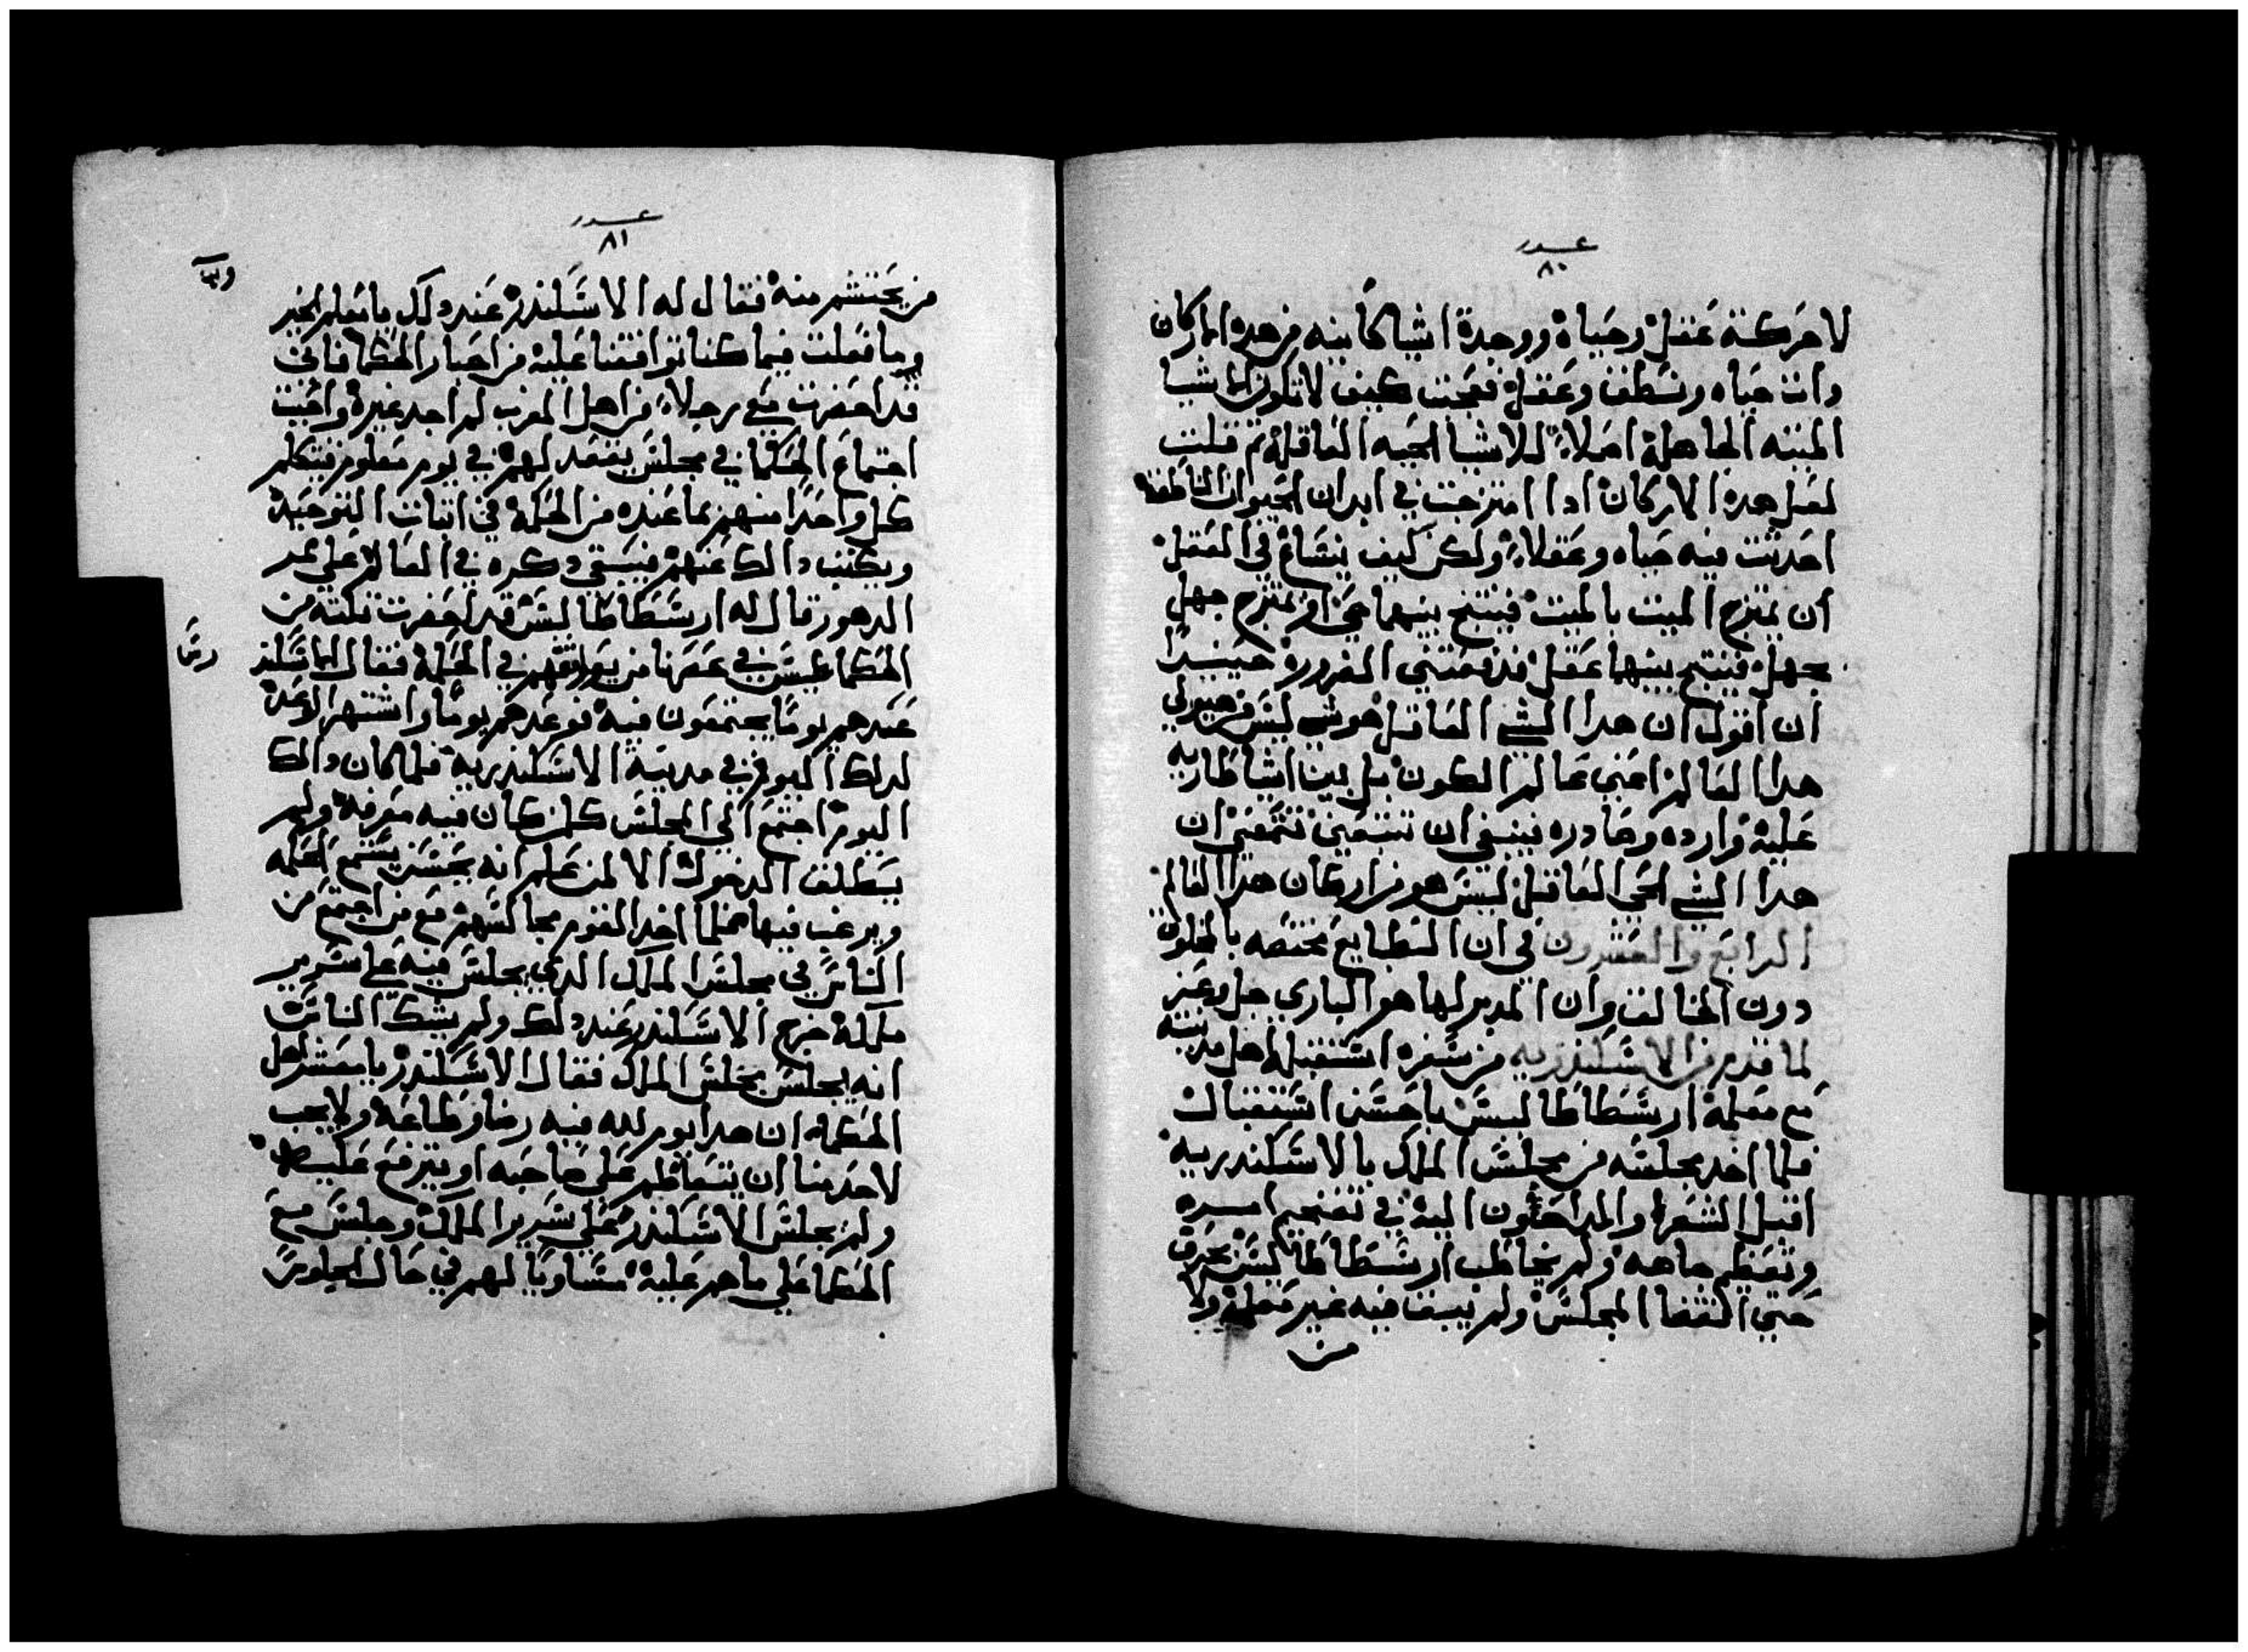 عدد
٨٠
لا حركة عقل وحياة ووجدة اشيا كاينه من هده الاركان
وانت حياه ونطق وعقل فعجبت كيف لا تكون الاشيا
الميته الجاهلة اصلاً للاشيا الحيه العاقلة ثم قلت
لعل هده الاركان ادا امتزجت في ابدان الحيوان الناطقه
احدثت فيه حياه وعقلاً ولكن كيف ينساغ في العقل
ان يمتزج الميت بالميت فينتج بينهما حي او يمتزج جهل
بجهل فينتج بينهما عقل فدفعتني الضرورة حينيدًا
ان اقول ان هدا الشي العاقل هو شي ليس من هيولي
هدا العالم اعني عالم الكون بل بينا اشيا طاريه
عليه وارده وصادره فينبغي ان
هدا الشي الحي العاقل ليس هو من اركان هدا العالم
الرابع والعشرون في ان الطبايع مختصه بالمخلوق
دون الخالق وان المدبر لها هو الباري جل وعز
لما قدم الاسكندريه من سفره استقبل اهل مدينته
مع معلمة ارسطاطاليس باحسن استقبال
فلما اخد مجلسه من مجلس الملك بالاسكندرية
اقبل الشعرا والمداحون اليه في تفخيم امره
وتعظيم جاهه ولم يخاطب ارسطاطاليس بحرف
حتي انقضا المجلس ولم يبق فيه غير معلمة ولا
من
عدد
٨١
من يحتشم منه فقال له الاسكندر عند دلك يا معلم الخير
وما فعلت فيما كنا توافقنا عليه من اخبار الحكما فاني
قد احضرت معي رجلاً من اهل المغرب لم اجد غيره واحببت
اجتماع الحكما في مجلس يعقد لهم في يوم معلوم فيتكلم
كل واحدًا منهم بما عنده من الحكمة في اتبات التوحيد
ويكتب دالك عنهم فيبقي دكره في العالم علي ممر
الدهور قال له ارسطاطاليس قد احضرت تلته من
الحكما ليس في عصرنا من يوافقهم في الحكمة فقال الاسكند
عندهم يومًا يجتمعون فيه فوعدهم يومًا واشتهر الاعدة
لدلك اليوم في مدينة الاسكندرية فلما كان دالك
اليوم اجتمع الي المجلس كل من كان فيه معرفة ولم
يطلق الدخول الا لمن علم انه يحسن يستمع الحكمه
ويرغب فيها فلما اخد القوم مجالسهم مع من اجتمع من
الناس في مجلس الملك الدي يجلس فيه علي سرير
ملكة خرج الاسكندر عند دلك ولم يشك الناس
انه يجلس مجلس الملك فقال الاسكندر يا معشر اهل
الحكمة ان هدا يوم لله فيه رضا وطاعة ولا يجب
لاحد منا ان يتعاظم علي صاحبه او يترفع عليه
ولم يجلس الاسكندر علي سرير الملك وجلس مع
الحكما علي ما هم عليه مساويًا لهم في حال الجلوس